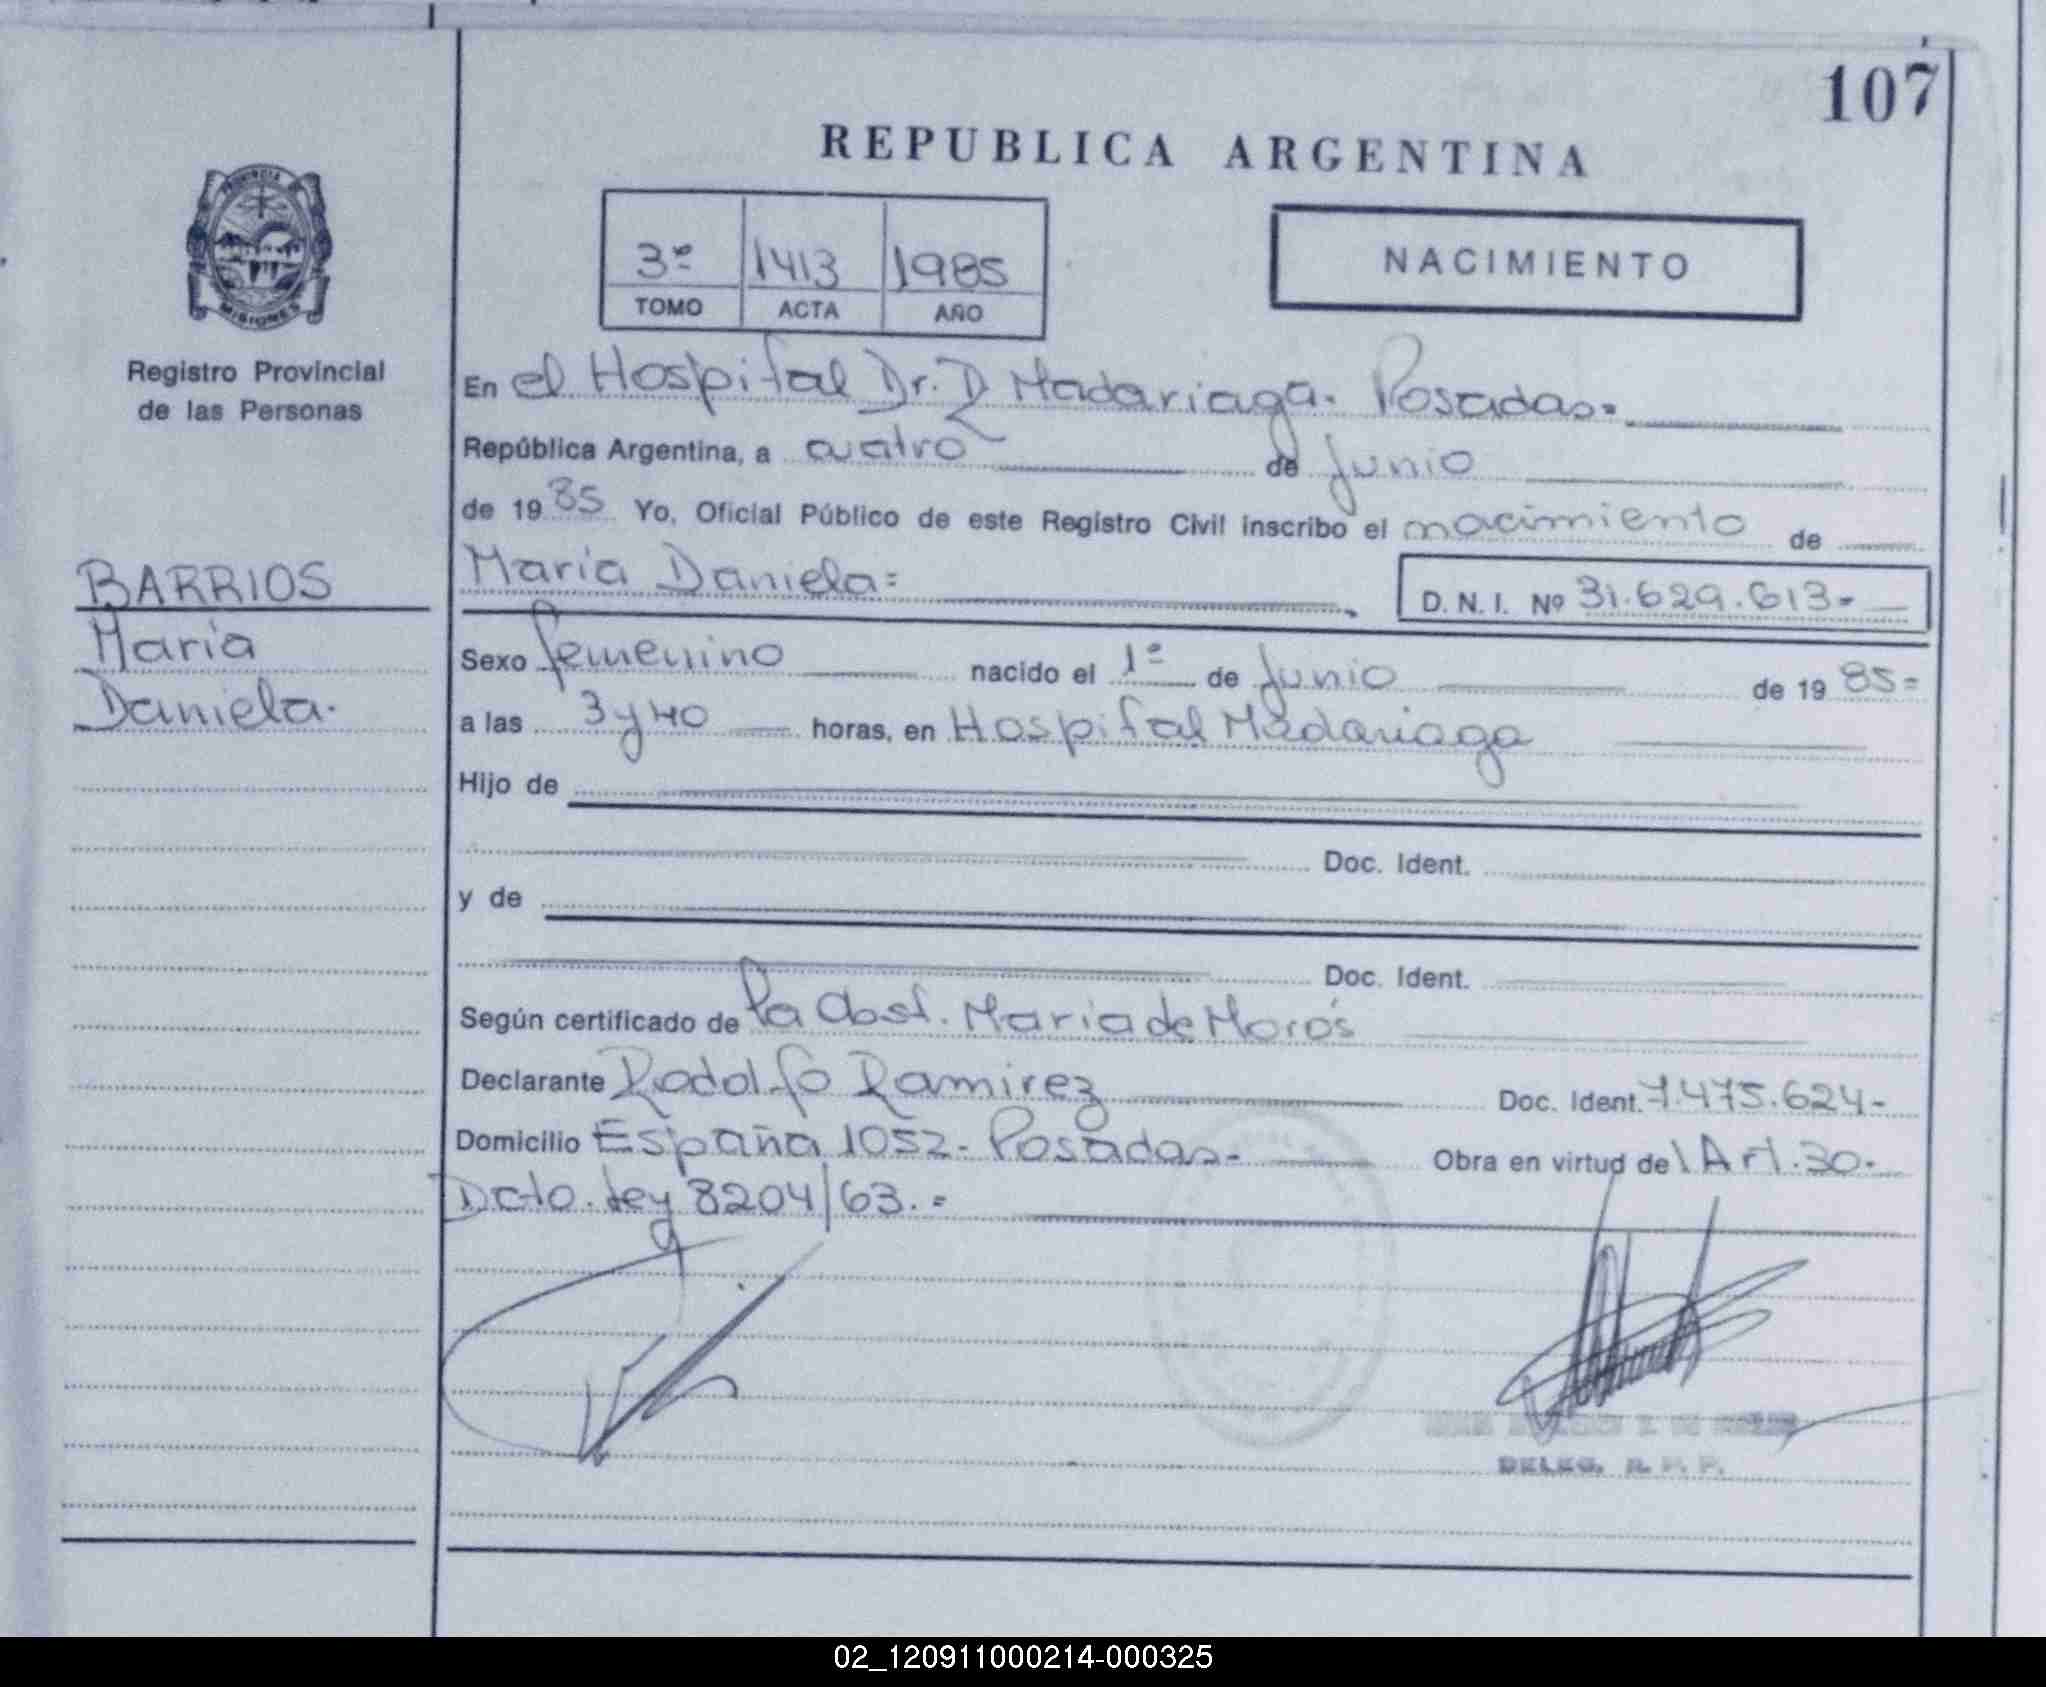 107
REPUBLICA ARGENTINA
PROVINCIA DE
MISIONES
Registro Provincial
de las Personas
3º 1413 1985
TOMO ACTA AÑO
NACIMIENTO
En el Hospital Dr. R Madariaga. Posadas.
República Argentina, a cuatro de Junio
de 1985 Yo, Oficial Público de este Registro Civil inscribo el nacimiento de
BARRIOS
María
Daniela.
María Daniela= D.N.I. Nº 31.629.613-
Sexo femenino nacido el 1º de Junio de 1985=
a las 3 y 40 horas, en Hospital Madariaga
Hijo de
Doc. Ident.
y de
Doc. Ident.
Según certificado de la Obst. Maria de Morós
Declarante Rodolfo Ramirez Doc. Ident. 7.475.624-
Domicilio España 1052- Posadas- Obra en virtud del Art. 30-
Dcto. Ley 8204/63.=
DELEG. R. P. P.
02_120911000214-000325